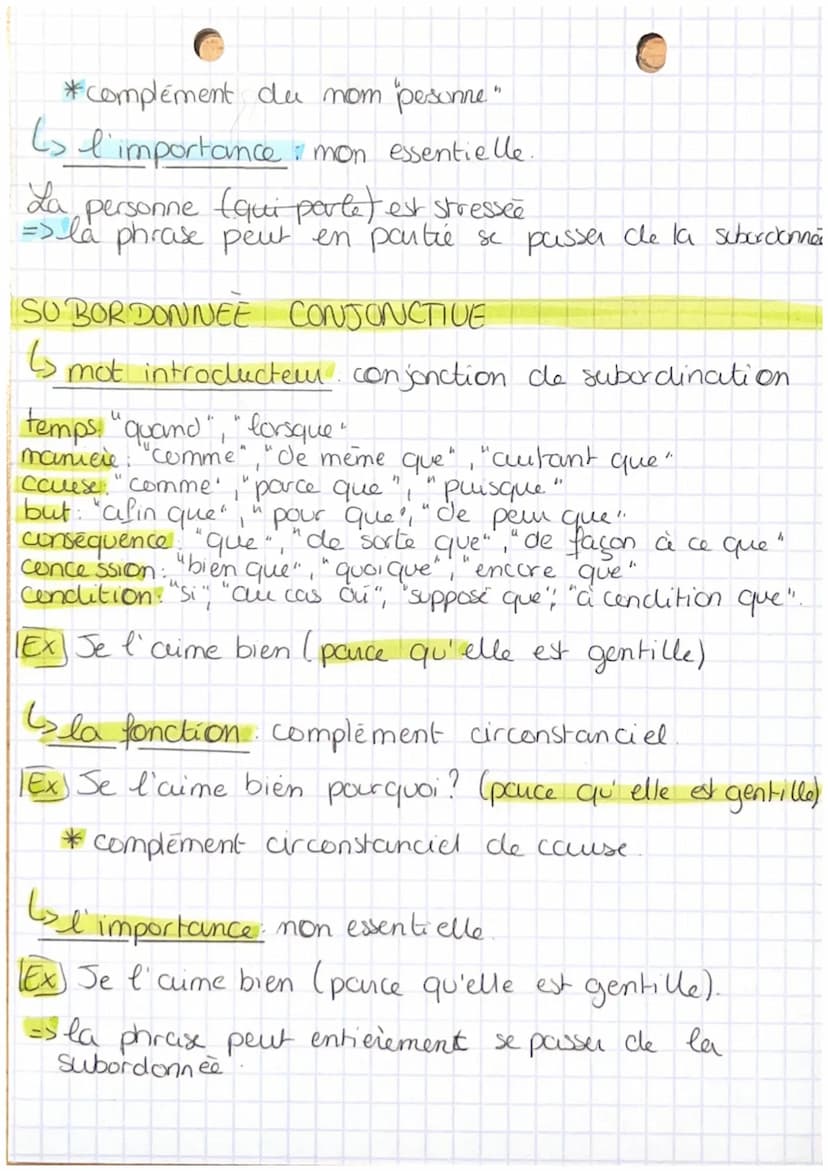 *complément du nom "pesonne"
↳ l'importance : non essentielle.
La personne (qui parle) est stressée
=> la phrase peut en partie se passer de la subordonnée
SUBORDONNÉE CONJONCTIVE
↳ mot introducteur : conjonction de subordination
temps: "quand", "lorsque"
manière: "comme", "de même que", "autant que"
cause: "comme", "parce que", "puisque"
but: "afin que", "pour que", "de peur que".
conséquence: "que", "de sorte que", "de façon à ce que"
concession: "bien que", "quoique", "encore que"
condition: "si", "au cas où", "supposé que", "à condition que".
Ex) Je l'aime bien (parce qu'elle est gentille)
↳ la fonction : complément circonstanciel.
Ex) Je l'aime bien pourquoi? (parce qu'elle est gentille)
* complément circonstanciel de cause.
↳ l'importance : non essentielle.
Ex) Je l'aime bien (parce qu'elle est gentille).
=> la phrase peut entièrement se passer de la
subordonnée.